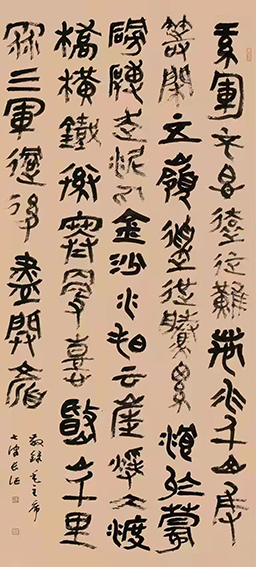 紅軍不怕遠征難萬水千山只
等閒五嶺逶迤騰細浪烏蒙
磅礴走泥丸金沙水拍云崖暖大渡
橋橫鐵索寒更喜岷山千里
雪三軍過後盡開顏
敬錄毛主席
七律長征